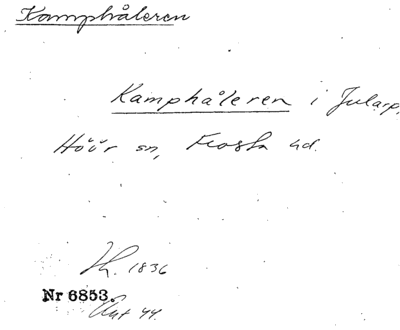 Kamphåleren
Kamphåleren i Jularp,
Höör sn, Frosta hd.
Th. 1836
Nr 6853.
Ant 44.